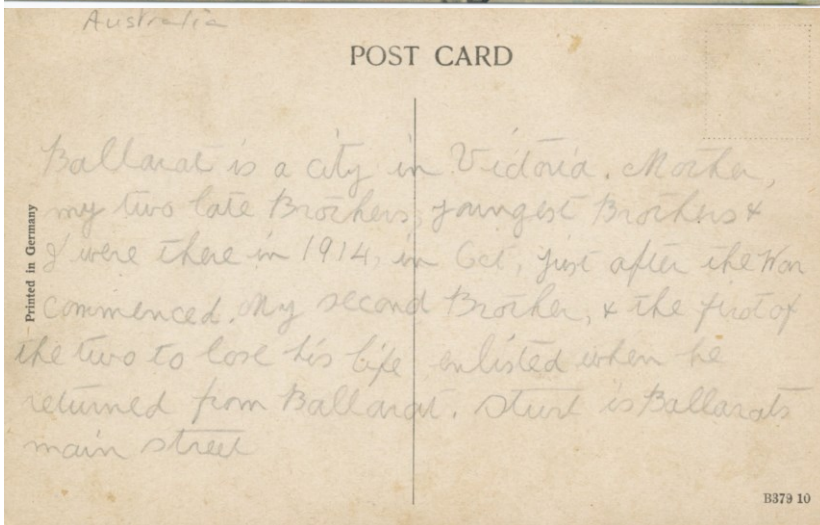 Australia
POST CARD
Ballarat is a city in Victoria. Mother,
my two late Brothers, youngest Brothers &
I were there in 1914, in Oct, just after the War
commenced. My second Brother, & the first of
the two to lose his life enlisted when he
returned from Ballarat. Sturt is Ballarats
main street
Printed in Germany
B379 10